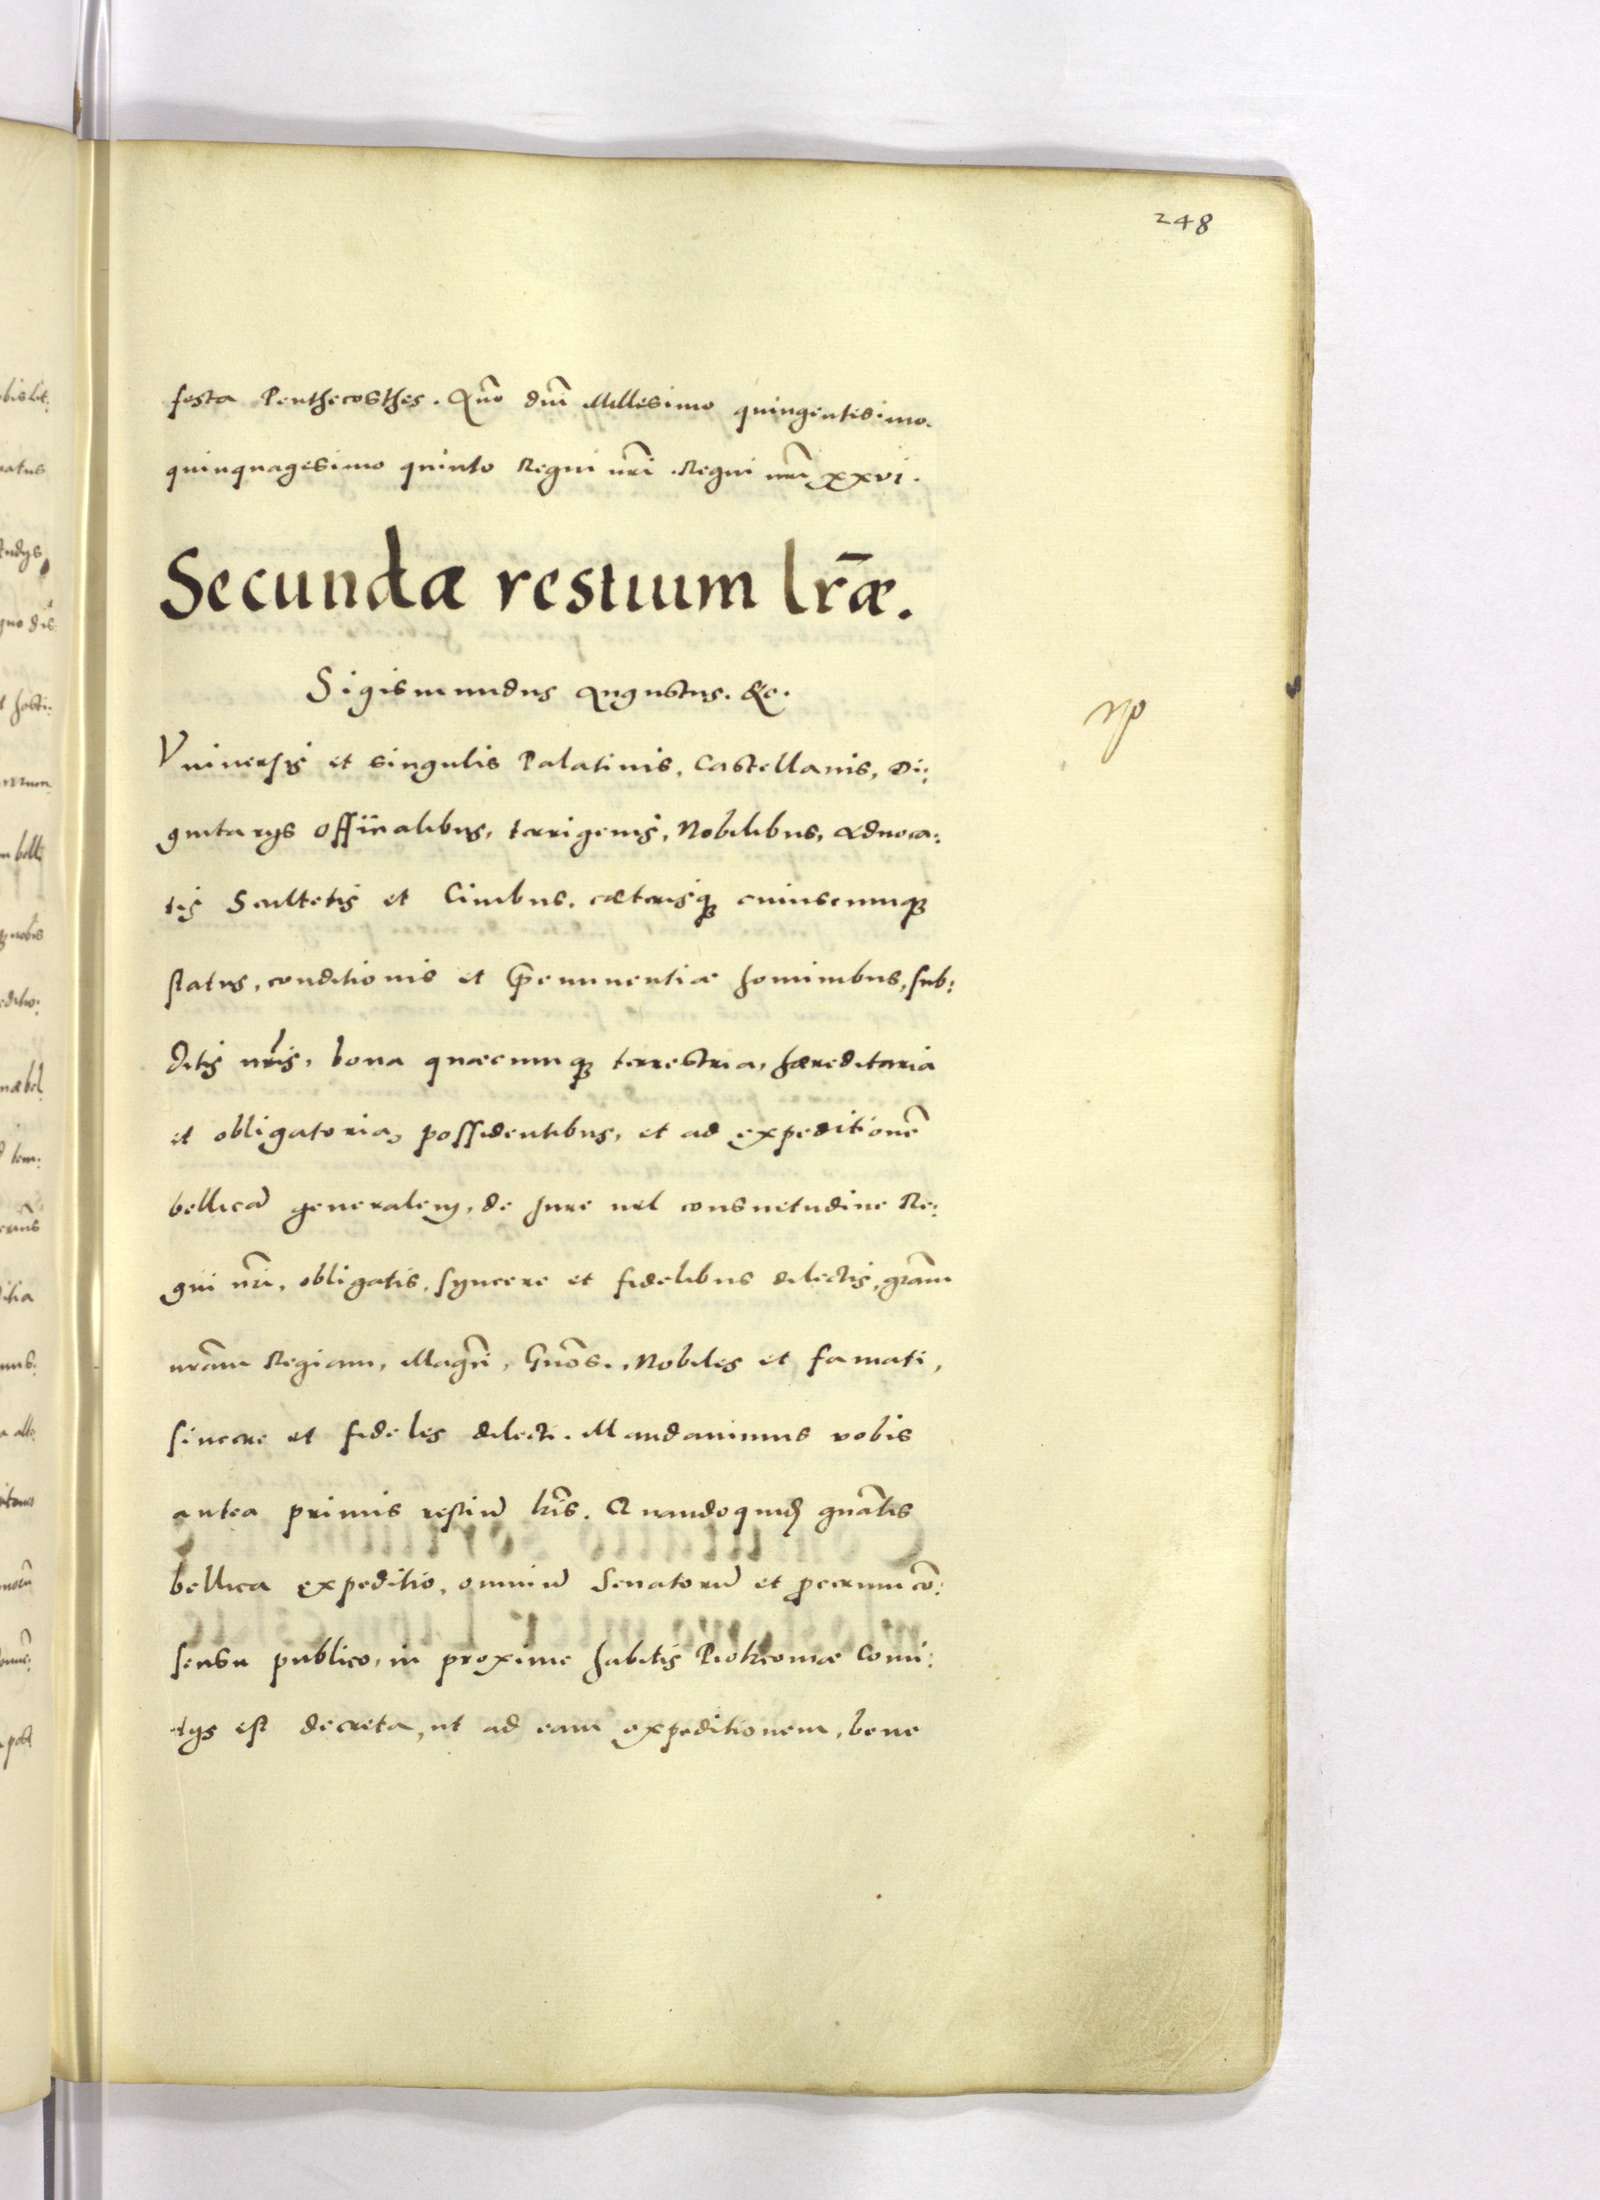 248
festa Penthecosthes. Año dñi Millesimo quingentesimo.
quinquagesimo quinto Regni nr̃i .Regni nr̃i xxvi.
Secundæ restium lr̃æ.
Sigismundus Augustus. &c.
Vniuersis et singulis Palatinis, Castellanis, Di:
gnitarijs Officialibus, terrigenis, Nobilibus, Aduoca:
tis Scultetis et Ciuibus. cæterisqȝ cuiuscunqȝ
status, conditionis et Præeminentiæ hominibus, sub:
ditis nr̃is, bona quæcumqȝ terrestria, hæreditaria
et obligatoria, possidentibus, et ad expeditionẽ
bellicã generalem, de Jure uel consuetudine Re:
gni nr̃i, obligatis, syncere et fidelibus dilectis, gr̃am
nr̃am Regiam, Magci, Gñosi, Nobiles et famati,
sincere et fideles dilecti. Mandauimus vobis
antea primis restiũ lr̃is. Quandoquidẽ gñalis
bellica expeditio, omniũ Senatorũ et procerum cõ:
sensu publico, in proxime habitis Piotrcouiæ Comi:
tijs est decreta, ut ad eam expeditionem, bene